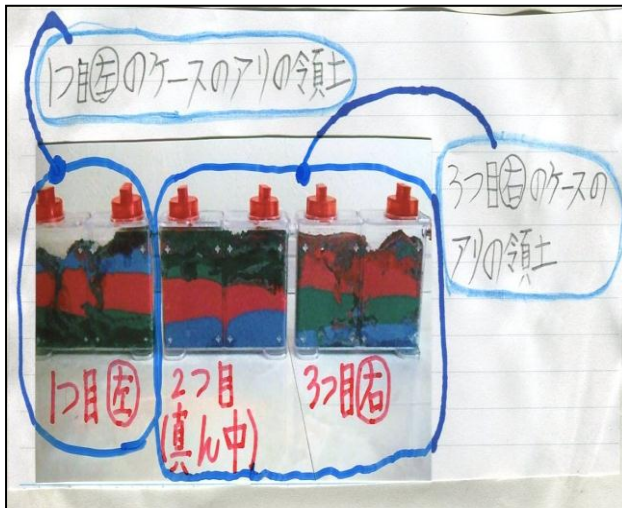 1つ目左のケースのアリの領土
3つ目右のケースの
アリの領土
1つ目左
2つ目
(真ん中)
3つ目右